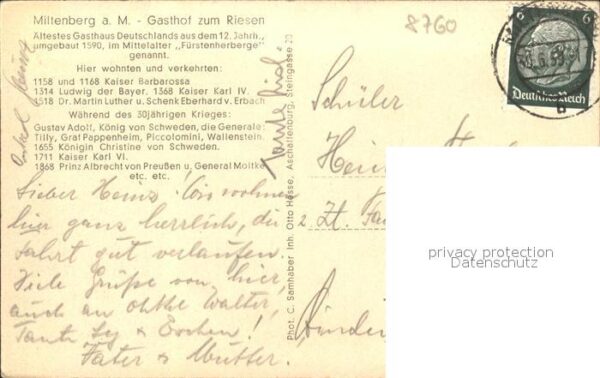 Miltenberg a. M. - Gasthof zum Riesen
Ältestes Gasthaus Deutschlands aus dem 12. Jahrh.,
umgebaut 1590, im Mittelalter „Fürstenherberge"
genannt.
Hier wohnten und verkehrten:
1158 und 1168 Kaiser Barbarossa
1314 Ludwig der Bayer. 1368 Kaiser Karl IV.
1518 Dr. Martin Luther u. Schenk Eberhard v. Erbach
Während des 30jährigen Krieges:
Gustav Adolf, König von Schweden, die Generale:
Tilly, Graf Pappenheim, Piccolomini, Wallenstein.
1655 Königin Christine von Schweden.
1711 Kaiser Karl VI.
1868 Prinz Albrecht von Preußen u. General Moltke
etc. etc.
Lieber Heinz! Wir wohnen
hier ganz herrlich, die
Fahrt gut verlaufen.
Viele Grüße von hier
auch an Walter,
Tante &
Vater & Mutter.
Onkel Heinz
Tante
Phot. C. Samhaber Inh. Otto Hesse, Aschaffenburg, Steingasse 20
8760
6 6
Deutsches Reich
Schüler
privacy protection
Datenschutz